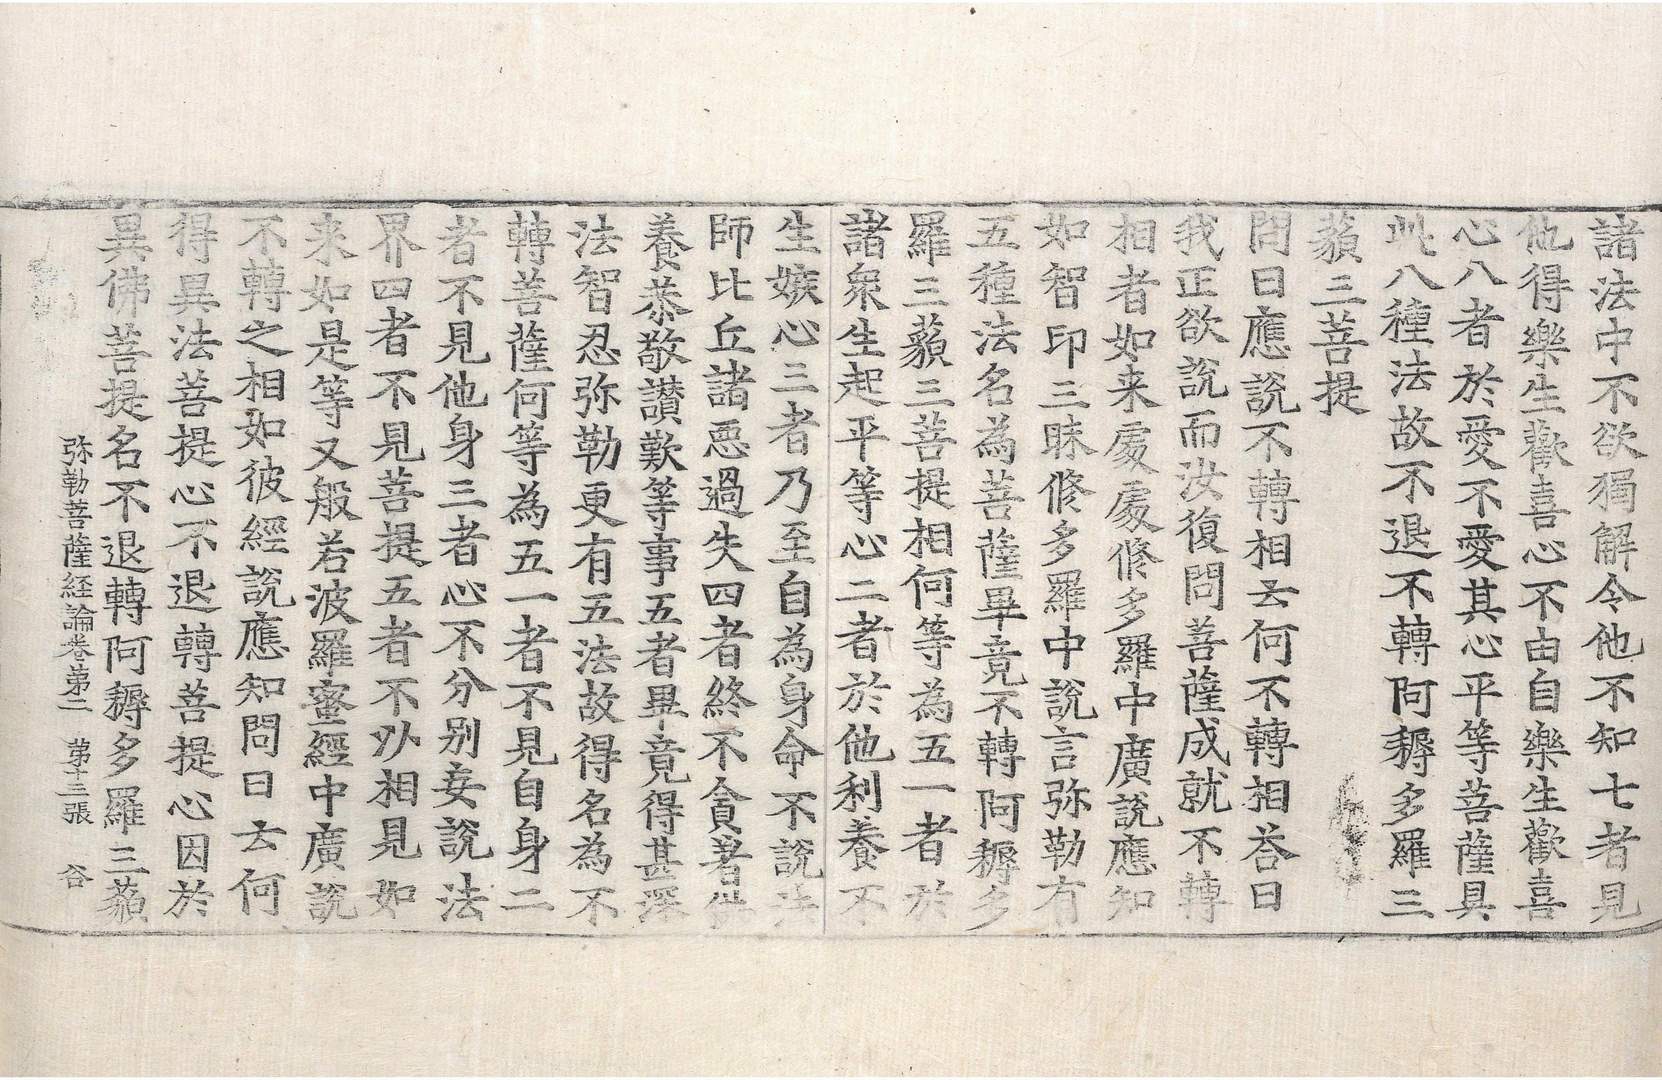 諸法中不欲獨解令他不知七者見
他得樂生歡喜心不由自樂生歡喜
心八者於愛不愛其心平等菩薩具
此八種法故不退不轉阿耨多羅三
藐三菩提
問曰應說不轉相云何不轉相荅曰
我正欲說而汝復問菩薩成就不轉
相者如来處處修多羅中廣說應知
如智印三昧修多羅中說言弥勒有
五種法名為菩薩畢竟不轉阿耨多
羅三藐三菩提相何等為五一者於
諸衆生起平等心二者於他利養不
生嫉心三者乃至自為身命不說法
師比丘諸惡過失四者終不貪著供
養恭敬讃歎等事五者畢竟得甚深
法智忍弥勒更有五法故得名為不
轉菩薩何等為五一者不見自身二
者不見他身三者心不分別妄說法
界四者不見菩提五者不以相見如
来如是等又般若波羅蜜經中廣說
不轉之相如彼經說應知問曰云何
得異法菩提心不退轉菩提心因於
異佛菩提名不退轉阿耨多羅三藐
弥勒菩薩経論卷第二　第十三張　谷